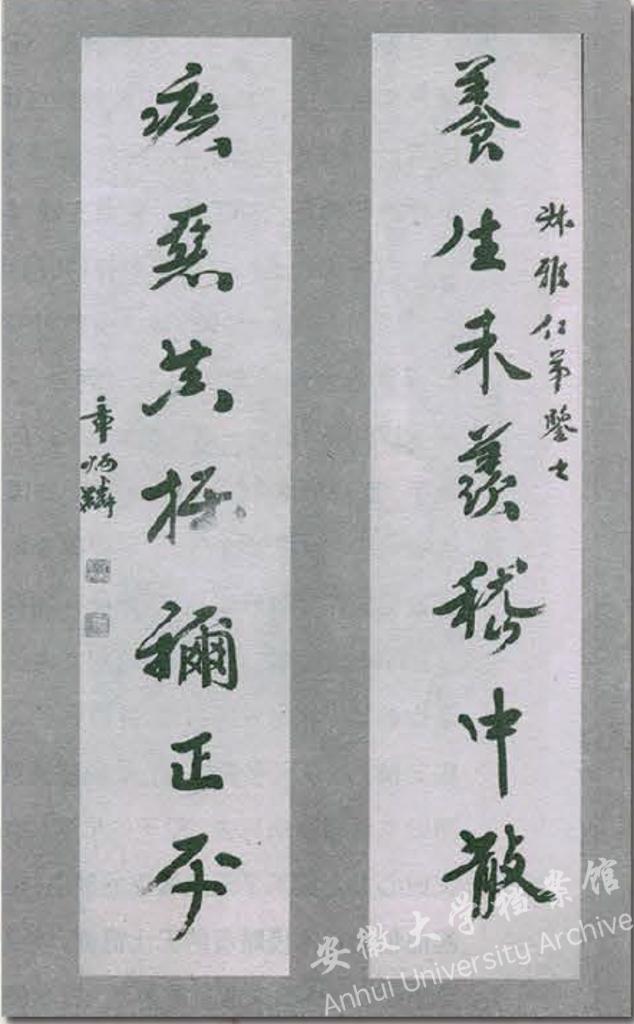 叔雅仁弟鑒之
養生未羨嵇中散
疾惡真推禰正平
章炳麟
安徽大学档案馆
Anhui University Archive